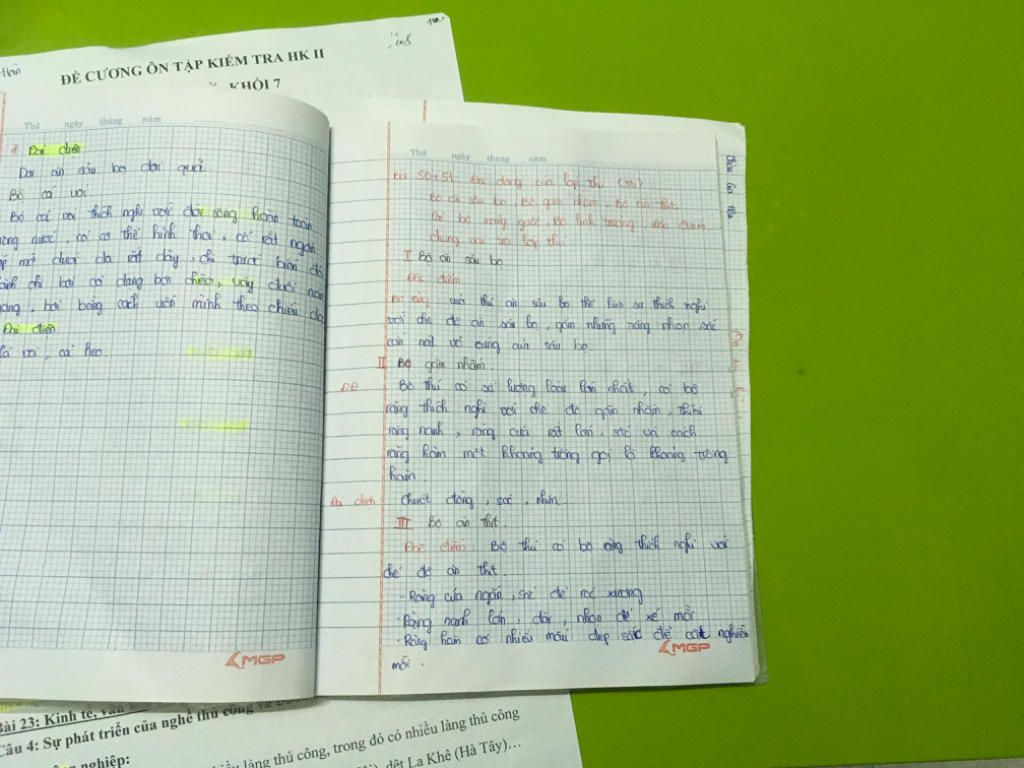 ĐỀ CƯƠNG ÔN TẬP KIỂM TRA HK II
KHỐI 7
Thứ ngày tháng năm
Đại diện
Dơi ăn sâu bọ dơi quả
Bộ cá voi
Bộ cá voi thích nghi với đời sống hoàn toàn
nước, có cơ thể hình thoi, cổ rất ngắn
mỡ dưới da rất dày, chi trước biến đổi
chi bơi có dạng bơi chèo, vây đuôi nằm
ngang, bơi bằng cách uốn mình theo chiều dọc
Đại diện
cá voi, cá heo.
MGP
Thứ ngày tháng năm
Bài 50+51: Đa dạng của lớp thú (tt)
Bộ ăn sâu bọ, Bộ gặm nhấm, Bộ ăn thịt
Các bộ móng guốc, Bộ linh trưởng, đặc điểm
chung vai trò lớp thú
I Bộ ăn sâu bọ
Đặc điểm
Bộ răng của thú ăn sâu bọ thể hiện sự thích nghi
với chế độ ăn sâu bọ, gồm những răng nhọn sắc
cắn nát vỏ cứng của sâu bọ
II Bộ gặm nhấm
ĐĐ Bộ thú có số lượng loài lớn nhất, có bộ
răng thích nghi với chế độ gặm nhấm, thiếu
răng nanh, răng cửa rất lớn, sắc và cách
răng hàm một khoảng trống gọi là khoảng trống
hàm
Đại diện Chuột đồng, sóc, nhím
III Bộ ăn thịt.
Đặc điểm: Bộ thú có bộ răng thích nghi với
chế độ ăn thịt.
- Răng cửa ngắn, sắc để róc xương
- Răng nanh lớn, dài, nhọn để xé mồi
- Răng hàm có nhiều mấu dẹp sắc để cắt nghiền
mồi.
MGP
Bài 23: Kinh tế,
Câu 4: Sự phát triển của nghề thủ công
nghiệp:
làng thủ công, trong đó có nhiều làng thủ công
dệt La Khê (Hà Tây)…